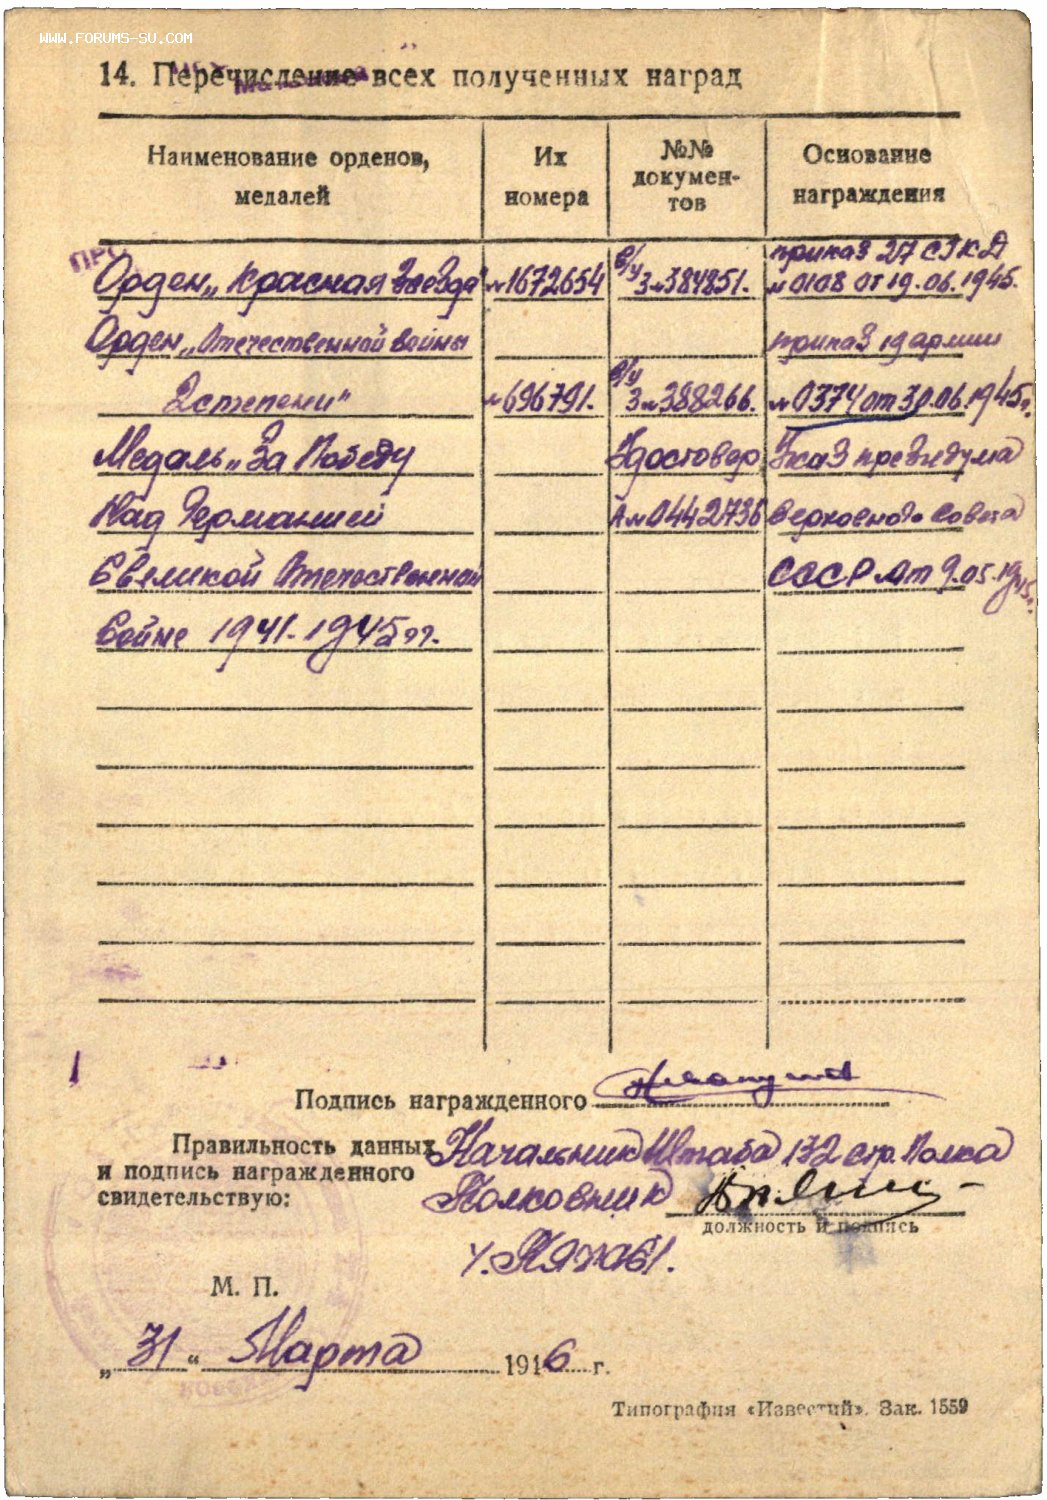 WWW.FORUMS-SU.COM
14. Перечисление всех полученных наград
Наименование орденов, медалей
Их номера
№№ докумен-тов
Основание награждения
приказ 27 СЗКД
Орден „Красная Звезда" №1672654 в/у З №384851. №0108 от 19.06.1945.
Орден „Отечественной войны приказ 19 армии
2 степени" №696791. в/у З №388266. №0374 от 30.06.1945г.
Медаль „За Победу Удостовер Указ президума
Над Германией А №0442736 Верховного Совета
в Великой Отечественной СССР от 9.05.1945г.
Войне 1941-1945 гг.
Подпись награжденного
Правильность данных Начальник Штаба 172 стр. Полка
и подпись награжденного
свидетельствую: Полковник
должность и подпись
М. П.
„31" Марта 1946 г.
Типография «Известий». Зак. 1559